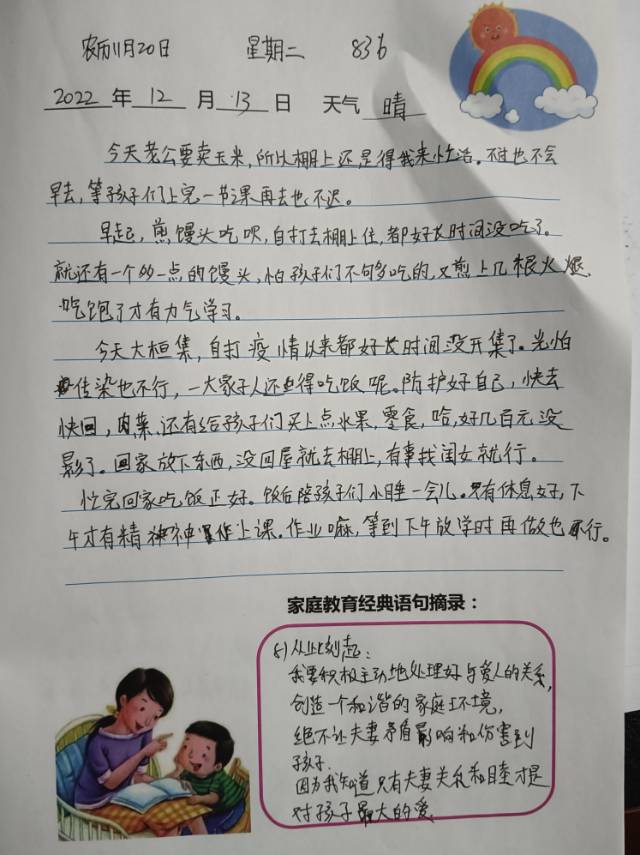 农历11月20日 星期二 836
2022 年 12 月 13 日 天气 晴
今天老公要卖玉米,所以棚上还是得我来忙活。不过也不会
早去,等孩子们上完一节课再去也不迟。
早起,煎馒头吃呗,自打去棚上住,都好长时间没吃了。
就还有一个多一点的馒头,怕孩子们不够多吃的,又煎上几根火腿,
吃饱了才有力气学习。
今天大桓集,自打疫情以来都好长时间没开集了。光怕
传染也不行,一大家子人还得吃饭呢。防护好自己,快去
快回,肉菜,还有给孩子们买上点水果,零食,哈,好几百元没
影了。回家放下东西,没回屋就去棚上,有事找闺女就行。
忙完回家吃饭正好。饭后陪孩子们小睡一会儿。只有休息好,下
午才有精神上课。作业嘛,等到下午放学时再做也行。
家庭教育经典语句摘录:
8)从此刻起:
我要积极主动地处理好与爱人的关系,
创造一个和谐的家庭环境,
绝不让夫妻矛盾影响和伤害到
孩子.
因为我知道只有夫妻关系和睦才是
对孩子最大的爱